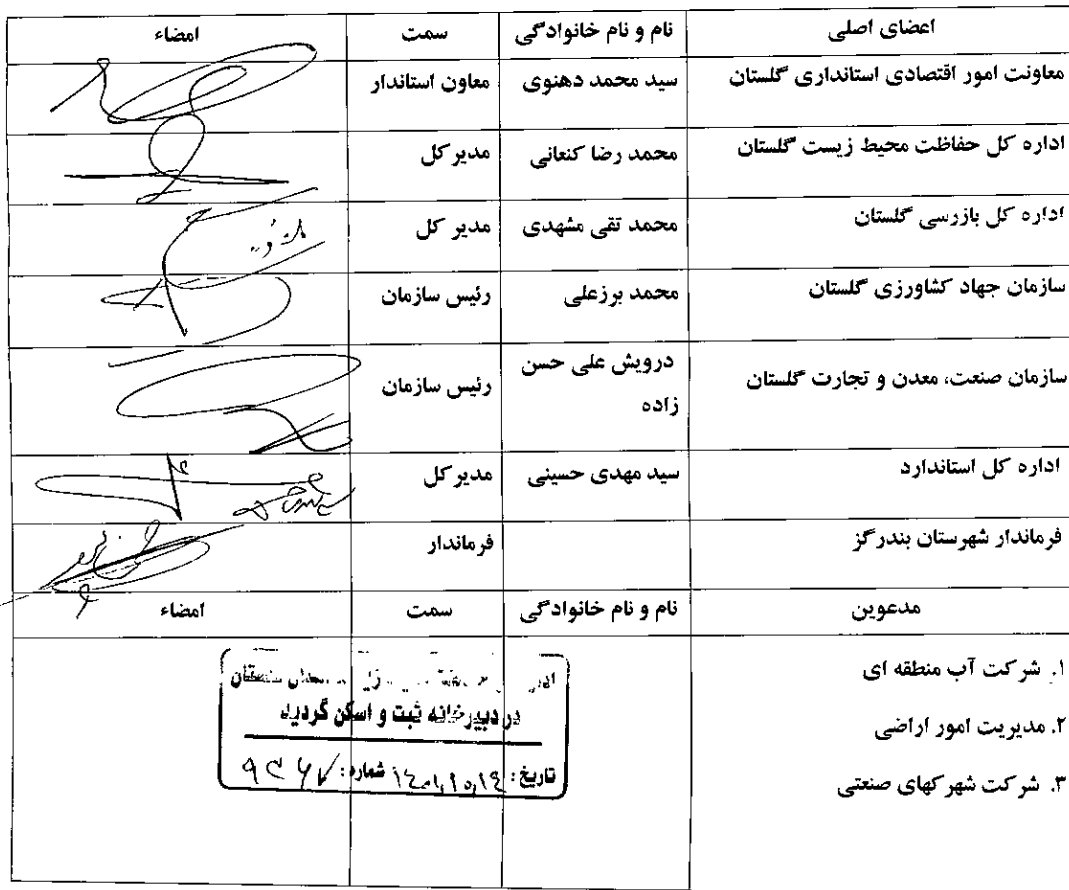 اعضای اصلی نام و نام خانوادگی سمت امضاء
معاونت امور اقتصادی استانداری گلستان سید محمد دهنوی معاون استاندار
اداره کل حفاظت محیط زیست گلستان محمد رضا کنعانی مدیر کل
اداره کل بازرسی گلستان محمد تقی مشهدی مدیر کل
سازمان جهاد کشاورزی گلستان محمد برزعلی رئیس سازمان
سازمان صنعت، معدن و تجارت گلستان درویش علی حسن رئیس سازمان
زاده
اداره کل استاندارد سید مهدی حسینی مدیر کل
فرماندار شهرستان بندرگز فرماندار
مدعوین نام و نام خانوادگی سمت امضاء
۱. شرکت آب منطقه ای
۲. مدیریت امور اراضی
۳. شرکت شهرکهای صنعتی
در دبیرخانه ثبت و اسکن گردید
تاریخ: ۱۴۰۱,۱۰,۱۴ شماره: